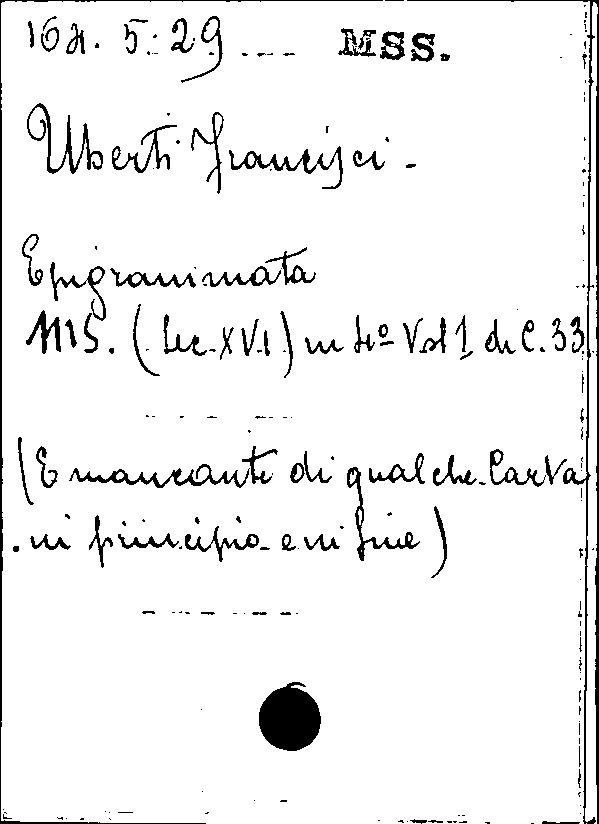 164. 5. 29 MSS.
Uberti Francisci -
Epigrammata
MS. (Sec. XVI) in 4º Vol 1 di C. 33
(È mancante di qualche Carta
in principio e in fine)